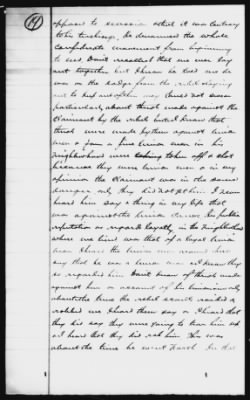 14
opposed to secession stated it was contrary
to his teachings. He denounced the whole
Confederate movement from beginning
to end. Don't recollect that we ever lay
out together but I know he told me he
was on the dodge from the rebels laying
out to keep out of their way. Could not answer
particularly about threats made against the
Claimant by the rebels but I know that
threats were made by them against union
men & from a few union men in his
neighborhood were taken off & shot
because they were union men & in my
opinion the Claimant was in the same
danger only they did not get him. I never
heard him say a thing in my life that
was against the Union cause. His public
reputation as regards loyalty in the neighborhood
where we lived was that of a loyal Union
man. I heard the Union men around there
say that he was a Union man and I know they
so regarded him. Don't know of threats made
against him on account of his Unionism only
about the time the rebel scouts raided &
robbed me I heard them say or I heard that
they did say they were going to
heard that they did rob him. This was
about the time he went North. In the